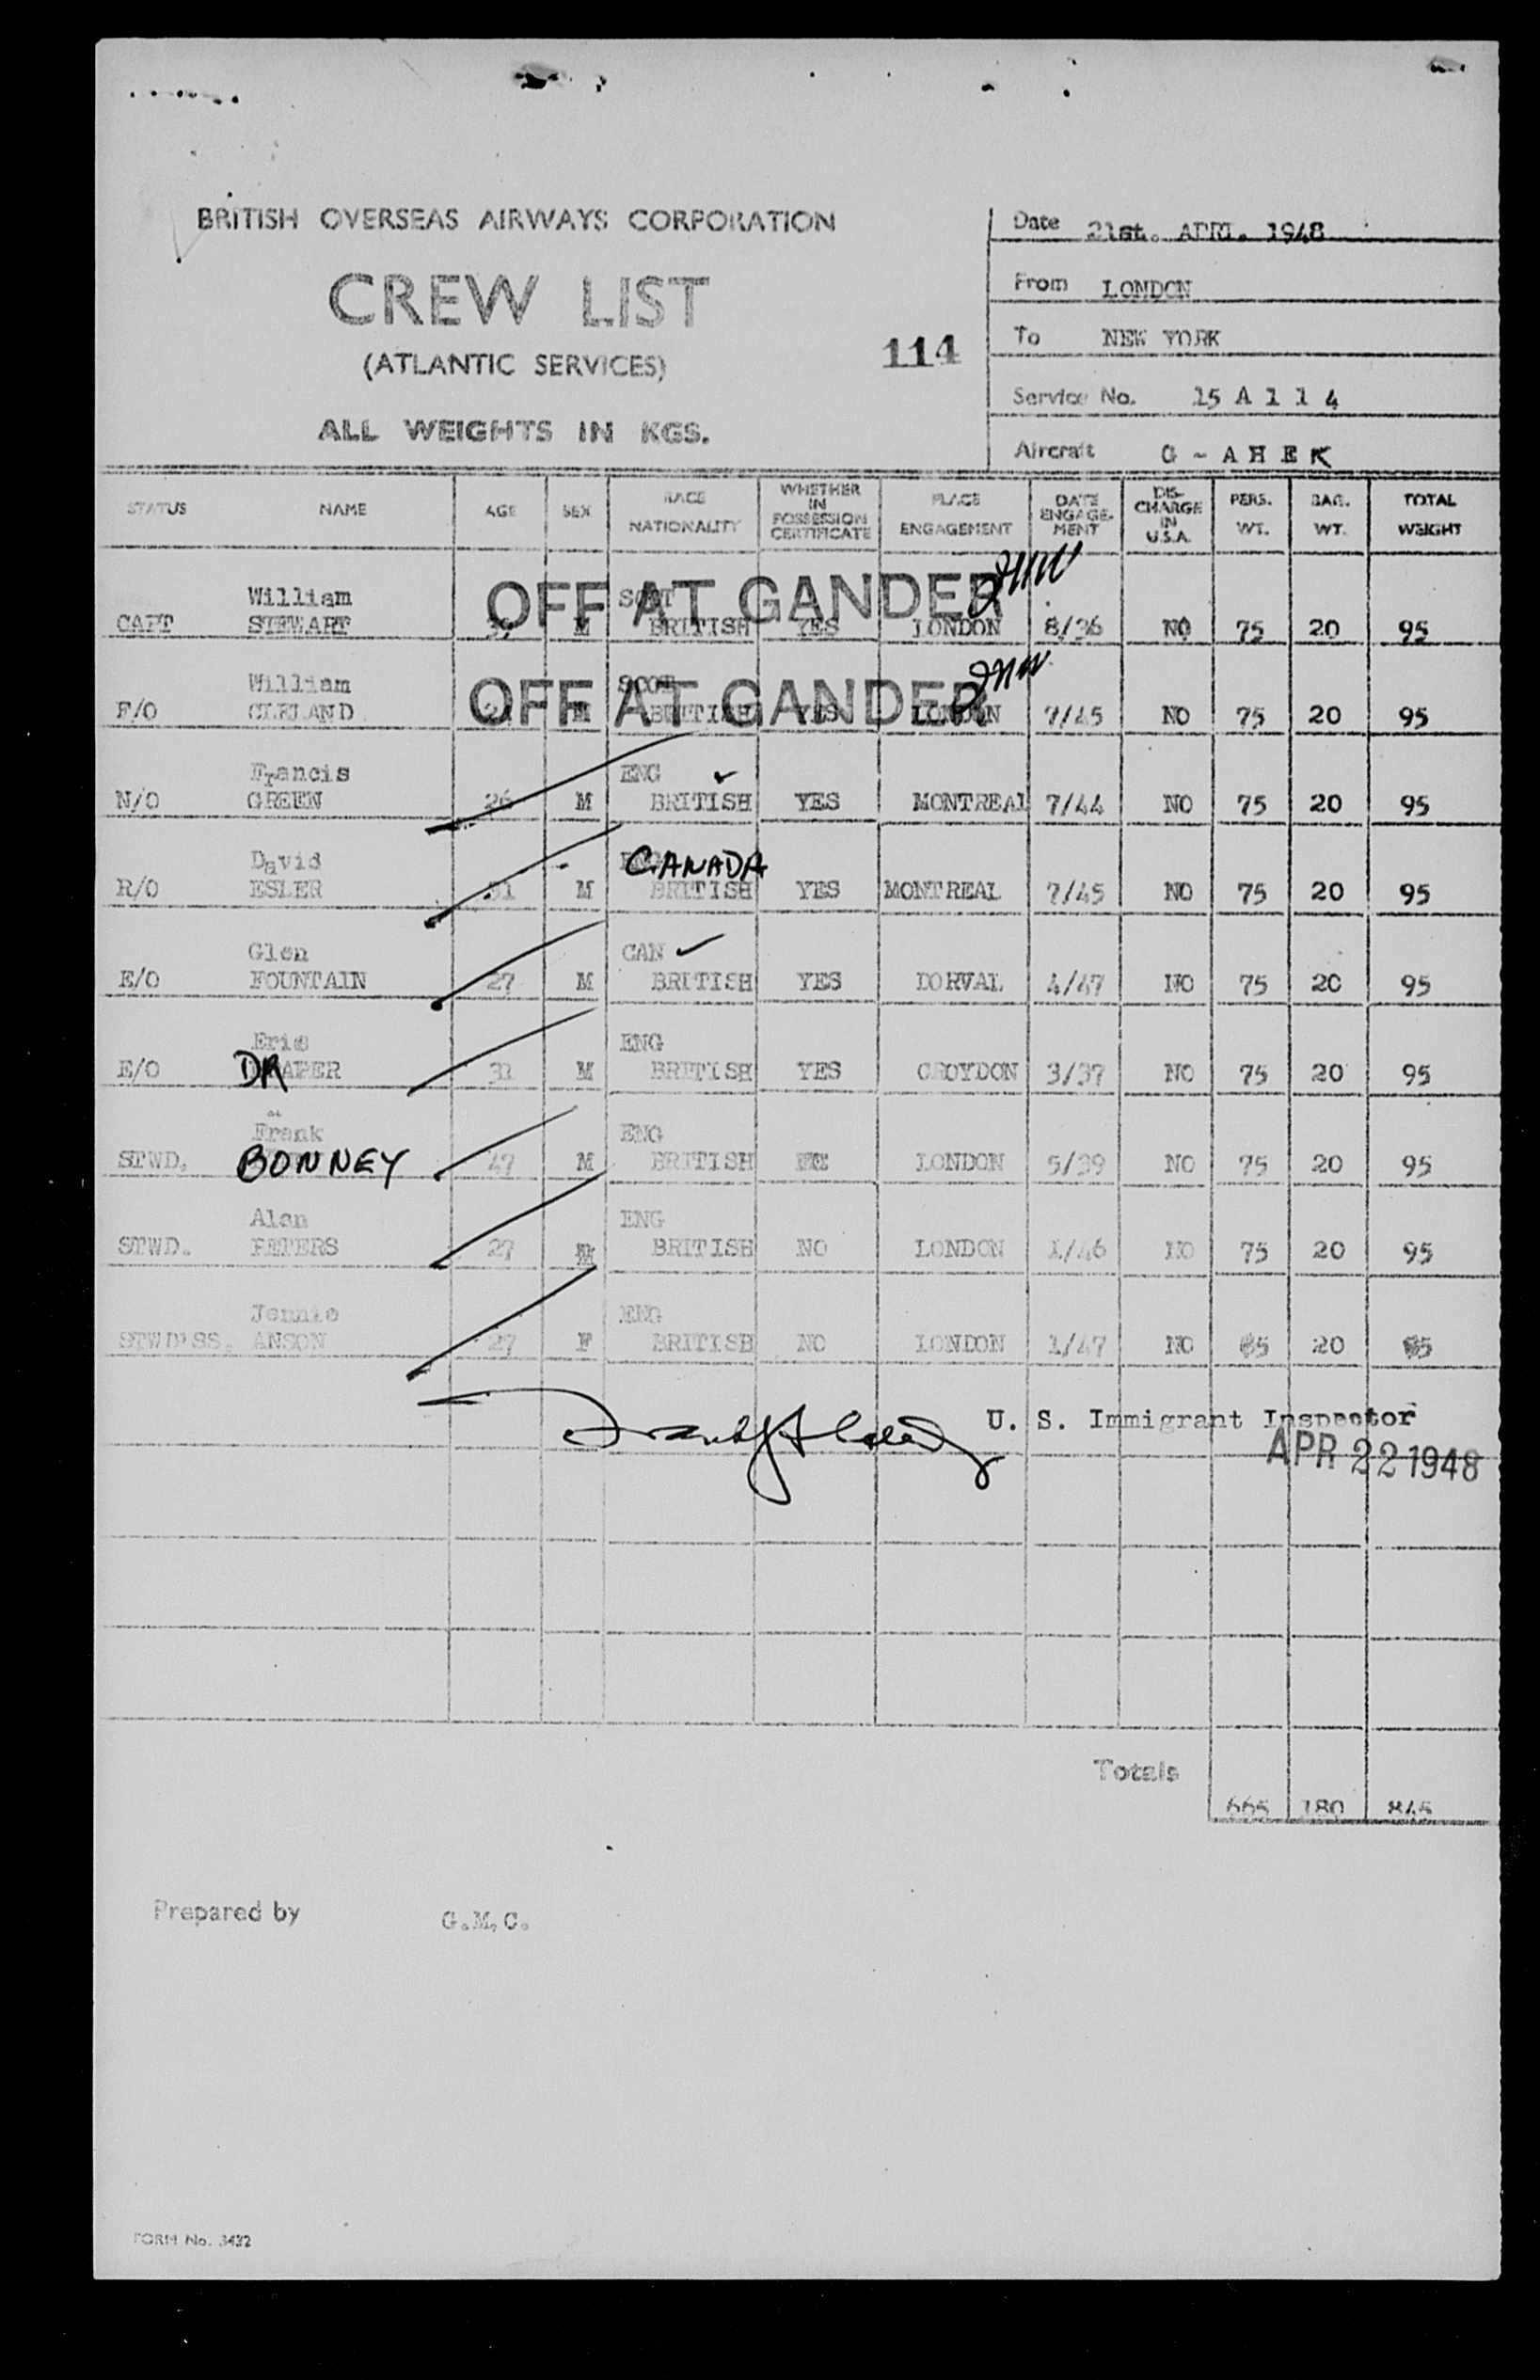 BRITISH OVERSEAS AIRWAYS CORPORATION
CREW LIST
(ATLANTIC SERVICES)
ALL WEIGHTS IN KGS.
114
Date 21st. APRL. 1948
From LONDON
To NEW YORK
Service No. 15 A 1 1 4
Aircraft G - A H E K
STATUS NAME AGE SEX RACE NATIONALITY WHETHER IN POSSESSION CERTIFICATE PLACE ENGAGEMENT DATE ENGAGE-MENT DIS-CHARGE IN U.S.A. PERS. WT. BAG. WT. TOTAL WEIGHT
William SCOT
OFF AT GANDER
CAPT STEWART M BRITISH YES LONDON 8/36 NO 75 20 95
William SCOT
OFF AT GANDER
F/O CLELAND M BRITISH YES LONDON 7/45 NO 75 20 95
Francis ENG
N/O GREEN 26 M BRITISH YES MONTREAL 7/44 NO 75 20 95
David CANADA
R/O ESLER 31 M BRITISH YES MONTREAL 7/45 NO 75 20 95
Glen CAN
E/O FOUNTAIN 27 M BRITISH YES DORVAL 4/47 NO 75 20 95
Eric ENG
E/O DRAPER 31 M BRITISH YES CROYDON 3/37 NO 75 20 95
Frank ENG
STWD. BONNEY 47 M BRITISH LONDON 5/39 NO 75 20 95
Alan ENG
STWD. PETERS 27 M BRITISH NO LONDON 1/46 NO 75 20 95
Jennie ENG
STWD'SS. ANSON 27 F BRITISH NO LONDON 1/47 NO 65 20 85
U. S. Immigrant Inspector
APR 22 1948
Totals
665 180 845
Prepared by G.M.C.
FORM No. 3432